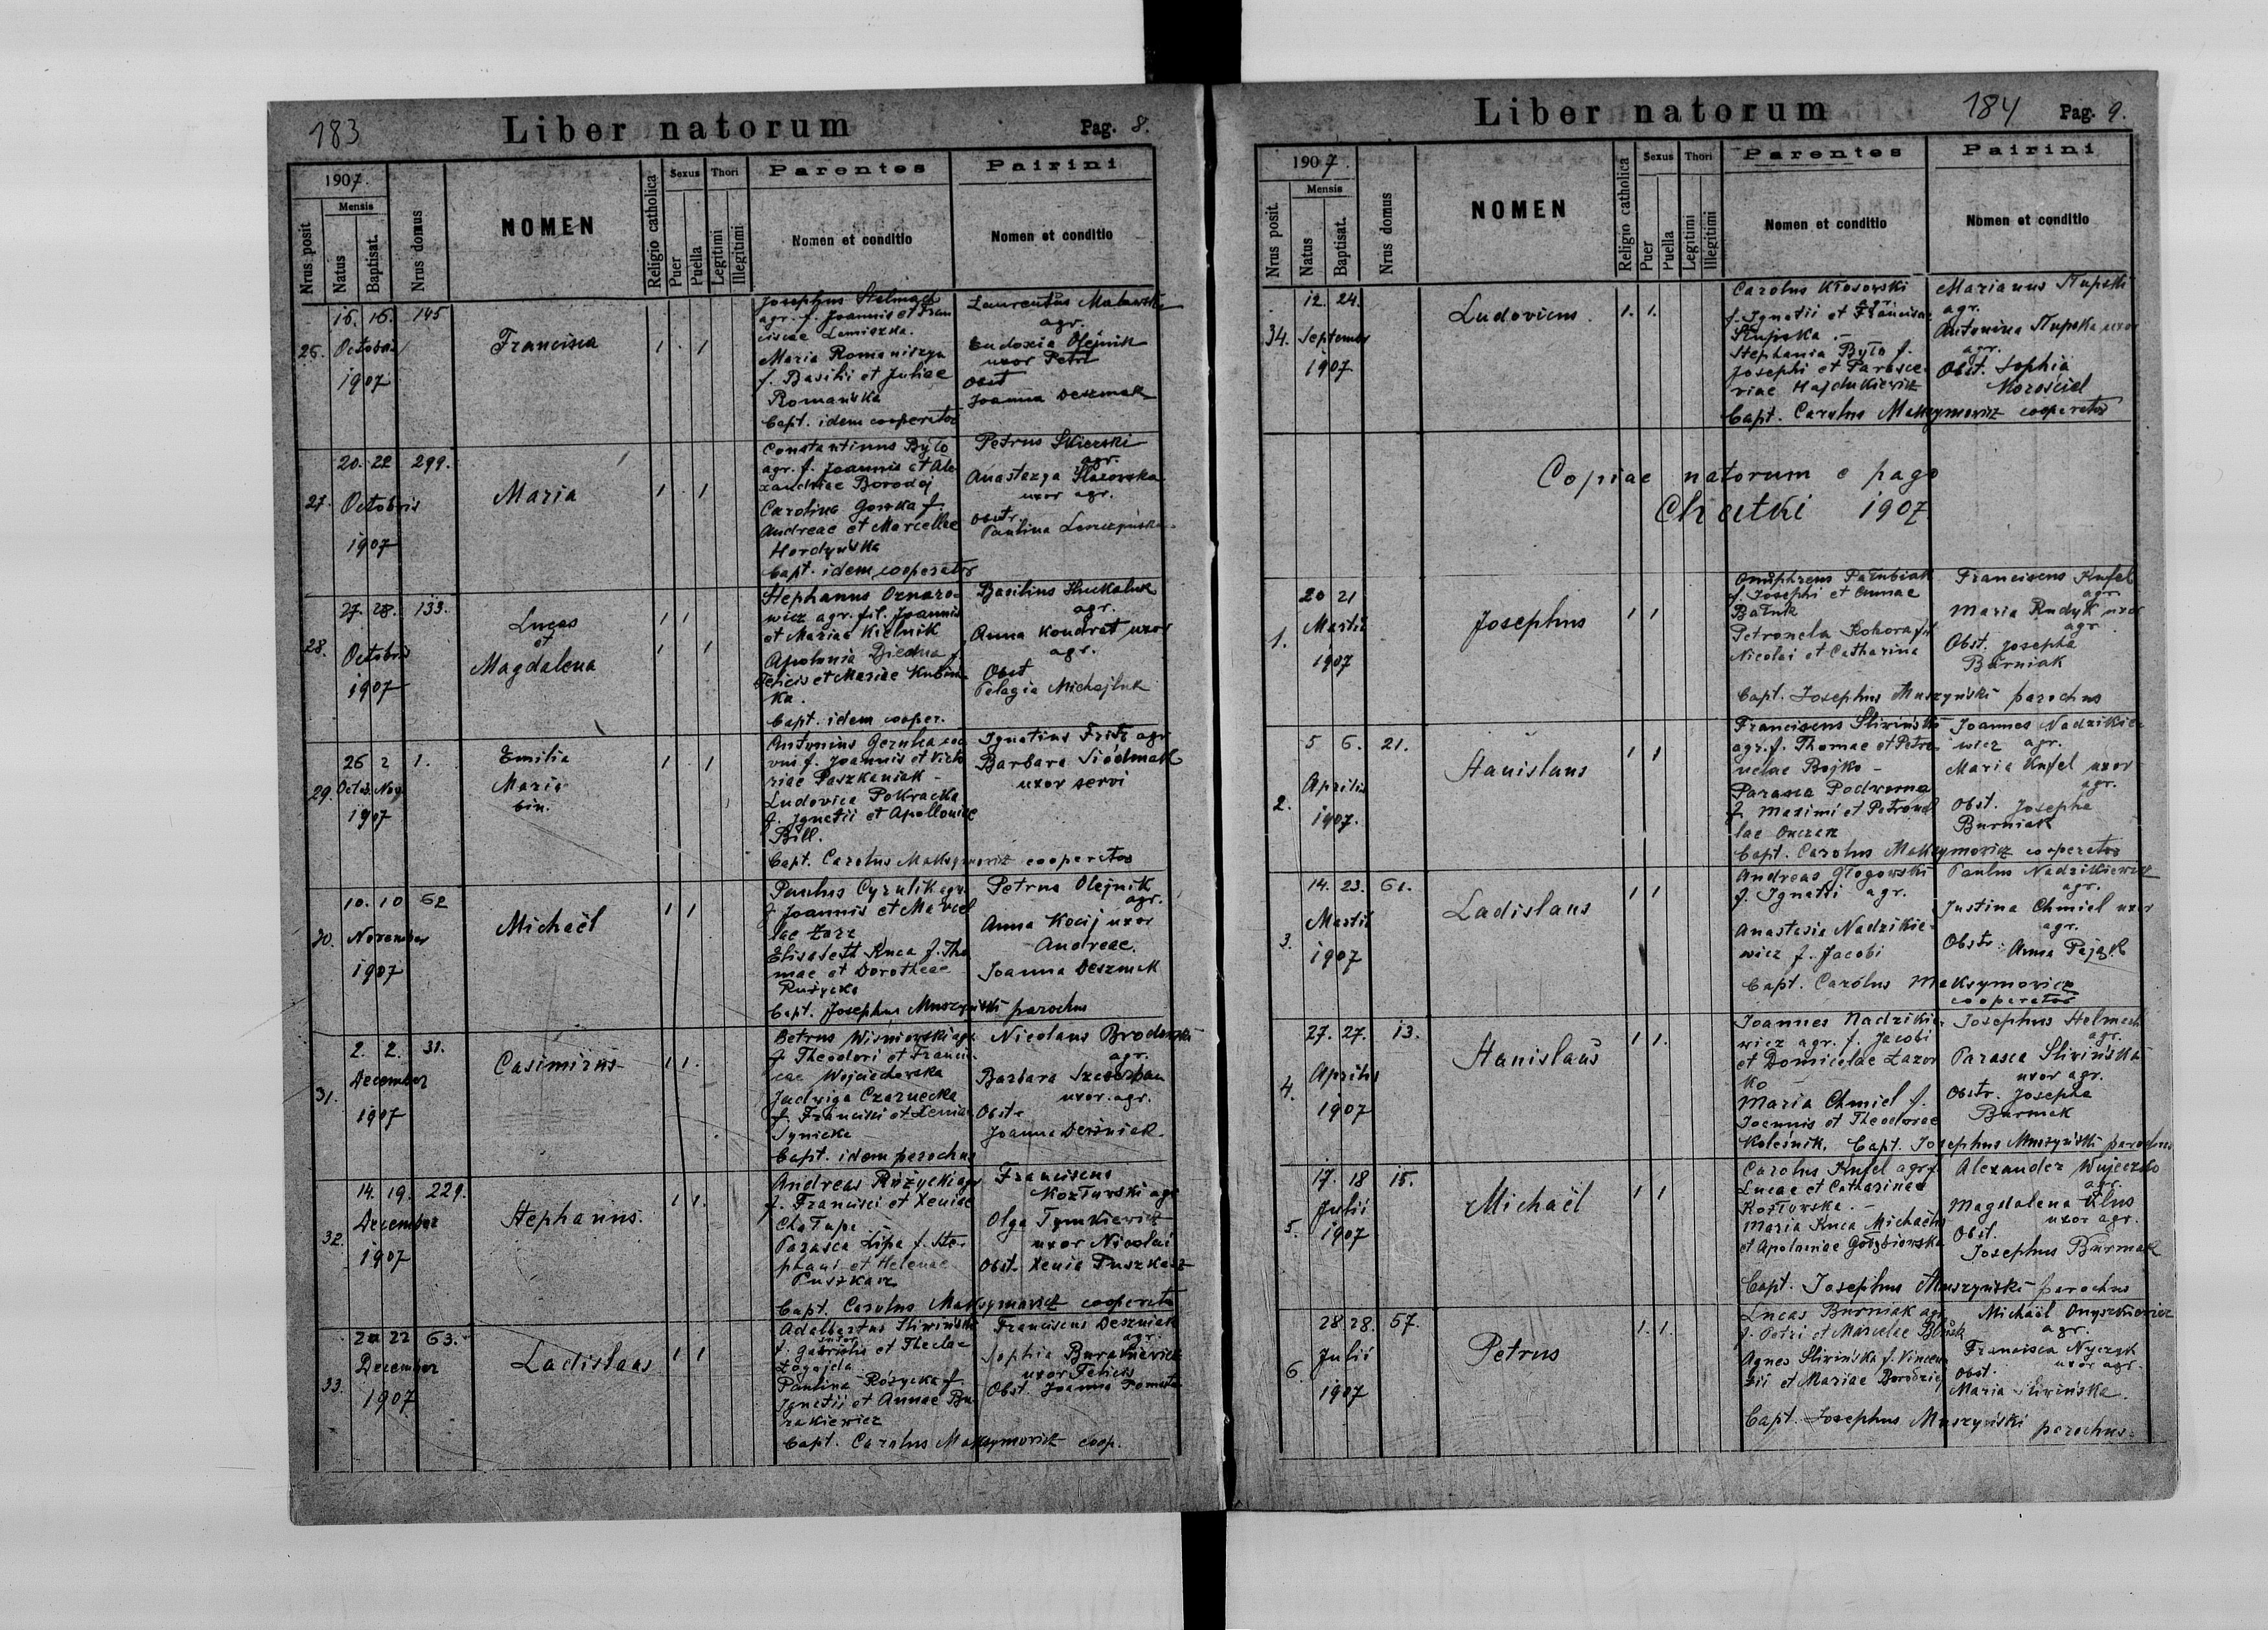 183
Liber natorum
Pag. 8.
1907.
Nrus posit
Mensis
Natus
Baptisat.
Nrus domus
NOMEN
Religio catholica
Sexus
Puer
Puella
Thori
Legitimi
Illegitimi
Parentes
Nomen et conditio
Pairini
Nomen et conditio
26.
15. 16. 145
Octobris
1907
Francisca
1 1
Josephus Stelmach
agr. f. Joannis et Fran
ciscae
Maria Romaniszyn
f. Basilii et Juliae
Romańska
Bapt. idem cooperator
Laurentius
agr.
Eudoxia Olejnik
uxor Petri
Obst
Joanna Deszmak
27.
20. 22 299.
Octobris
1907
Maria
1 1
Constantinus Było
agr. f. Joannis et Ale
xandriae Borodaj
Carolina Gorska f.
Andreae et Marcellae
Hordyńska
Bapt. idem cooperator
Petrus Skierski
agr.
Anastazya
uxor agr.
obstr.
Paulina
28.
27. 28. 133.
Octobris
1907
Lucas
et
Magdalena
1 1
1 1
Stephanus
wicz agr. fil. Joannis
et Mariae Kielnik
Apolonia f.
Felicis et Mariae
ka.
Bapt. idem cooper.
Basilius
agr.
Anna Kondrat uxor
agr.
Obst
Pelagia Michajluk
29.
26 2 1.
Octob. Nov
1907
Emilia
Maria
bin.
1 1
Antonius
f. Joannis et Victo
riae Paszkaniak -
Ludovica Pokracka
f. Ignatii et Apolloniae
Bill.
Bapt. Carolus Maksymowicz cooperator
Ignatius Fritz agr
Barbara Siódmak
uxor servi
30.
10. 10 62
November
1907
Michaël
1 1
Paulus Cyrulik agr.
f. Joannis et Marcel
lae
Elisabeth Kuca f. Tho
mae et Dorotheae
Bapt. Josephus Muszyński parochus
Petrus Olejnik
agr.
Anna Kocij uxor
Andreae.
Joanna Deszmak
31.
2. 2. 31.
December
1907
Casimirus
1 1.
Petrus Wisniowski agr
f. Theodori et Franci
cae Wojciechowska
Jadwiga Czarnecka
f. Francisci et Xeniae
Bapt. idem parochus
Nicolaus Brodowski
agr.
Barbara Szczerban
uxor. agr.
Obst.
Joanna Deszniak.
32.
14. 19. 229.
December
1907
Stephanus.
1 1.
Andreas Różycki agr
f. Francisci et Xeniae
Chałupa
Parasca Lipa f. Ste-
phani et Helenae
Puszkarz
Bapt. Carolus Maksymowicz cooperato
Franciscus
Kozłowski agr
Olga Tymkiewicz
uxor Nicolai
Obst. Xenia Puszkarz
33.
22 63.
December
1907
Ladislaus
1 1
Adalbertus Sliwiński
sutor
f. Gabrielis et Theclae
Łogojda
Paulina Rożycka f.
Ignatii et Annae Bu
rakiewicz
Bapt. Carolus Maksymowicz coop.
Franciscus Deszniak
agr.
Sophia Burakiewicz
uxor Felicis
Obst. Joanna
Liber natorum
184
Pag. 9.
1907
Nrus posit.
Mensis
Natus
Baptisat.
Nrus domus
NOMEN
Religio catholica
Sexus
Puer
Puella
Thori
Legitimi
Illegitimi
Parentes
Nomen et conditio
Pairini
Nomen et conditio
34.
12. 24.
September
1907
Ludovicus.
1. 1.
Carolus Kłosowski
agr.
f. Ignatii et Franciscae
Słupska. -
Stephania Było f.
Josephi et Parasce
viae Hajdukiewicz
Bapt. Carolus Maksymowicz cooperator
Marianus Słupski
agr.
Antonina Słupska uxor
agr.
Obst. Sophia
Korościel
Copiae natorum e pago
Chatki 1907
1.
20 21
Martii
1907
Josephus
1 1
Onuphreus Pałubiak
f. Josephi et Annae
Bałuk
Petronela Kohora fil
Nicolai et Catharina
Bapt. Josephus Muszyński parochus
Franciscus Kufel
agr
Maria Rudyk uxor
agr.
Obst. Josepha
Burniak
2.
5 6. 21.
Aprilis
1907.
Stanislaus
1 1
Franciscus Sliwiński
agr. f. Thomae et Petro
nelae Bojko -
Parasca Podworna
f. Maximi et Petronel
lae
Bapt. Carolus Maksymowicz cooperator
Joannes Nadzikie
wicz agr.
Maria Kufel uxor
agr.
Obst. Josepha
Burniak
3.
14. 23. 61.
Martii
1907
Ladislaus
1 1
Andreas Głogowski
f. Ignatii agr.
Anastasia Nadzikie-
wicz f. Jacobi
Bapt. Carolus Maksymowicz
cooperator
Paulus Nadzikiewicz
agr.
Justina Chmiel uxor
agr.
Obst. Anna Pająk
4.
27. 27. 13.
Aprilis
1907
Stanislaus
1 1.
Joannes Nadzikie
wicz agr. f. Jacobi
et Domicelae Łazor
ko -
Maria Chmiel f.
Joannis et Theodorae
Koleśnik. Bapt. Josephus Muszyński parochus
Josephus Stelmach
agr.
Parasca Sliwińska
uxor agr.
Obstr. Josepha
Burniak
5.
17. 18 15.
Julii
1907
Michaël
1 1
Carolus Kufel agr f.
Lucae et Catharinae
Kozłowska. -
Maria Kuca Michaelis
et Apoloniae Gołębiowska
Bapt. Josephus Muszyński parochus
Alexander Wujeczko
agr.
Magdalena
uxor agr.
Obst.
Josephus Burniak
6.
28 28. 57.
Julii
1907
Petrus
1. 1.
Lucas Burniak agr
f. Petri et Marcelae
Agnes Sliwińska f. Vincen
tii et Mariae
Bapt. Josephus Muszyński parochus.
Michaël Onyszkiewicz
agr.
Francisca
uxor agr.
Obst.
Maria Sliwińska.